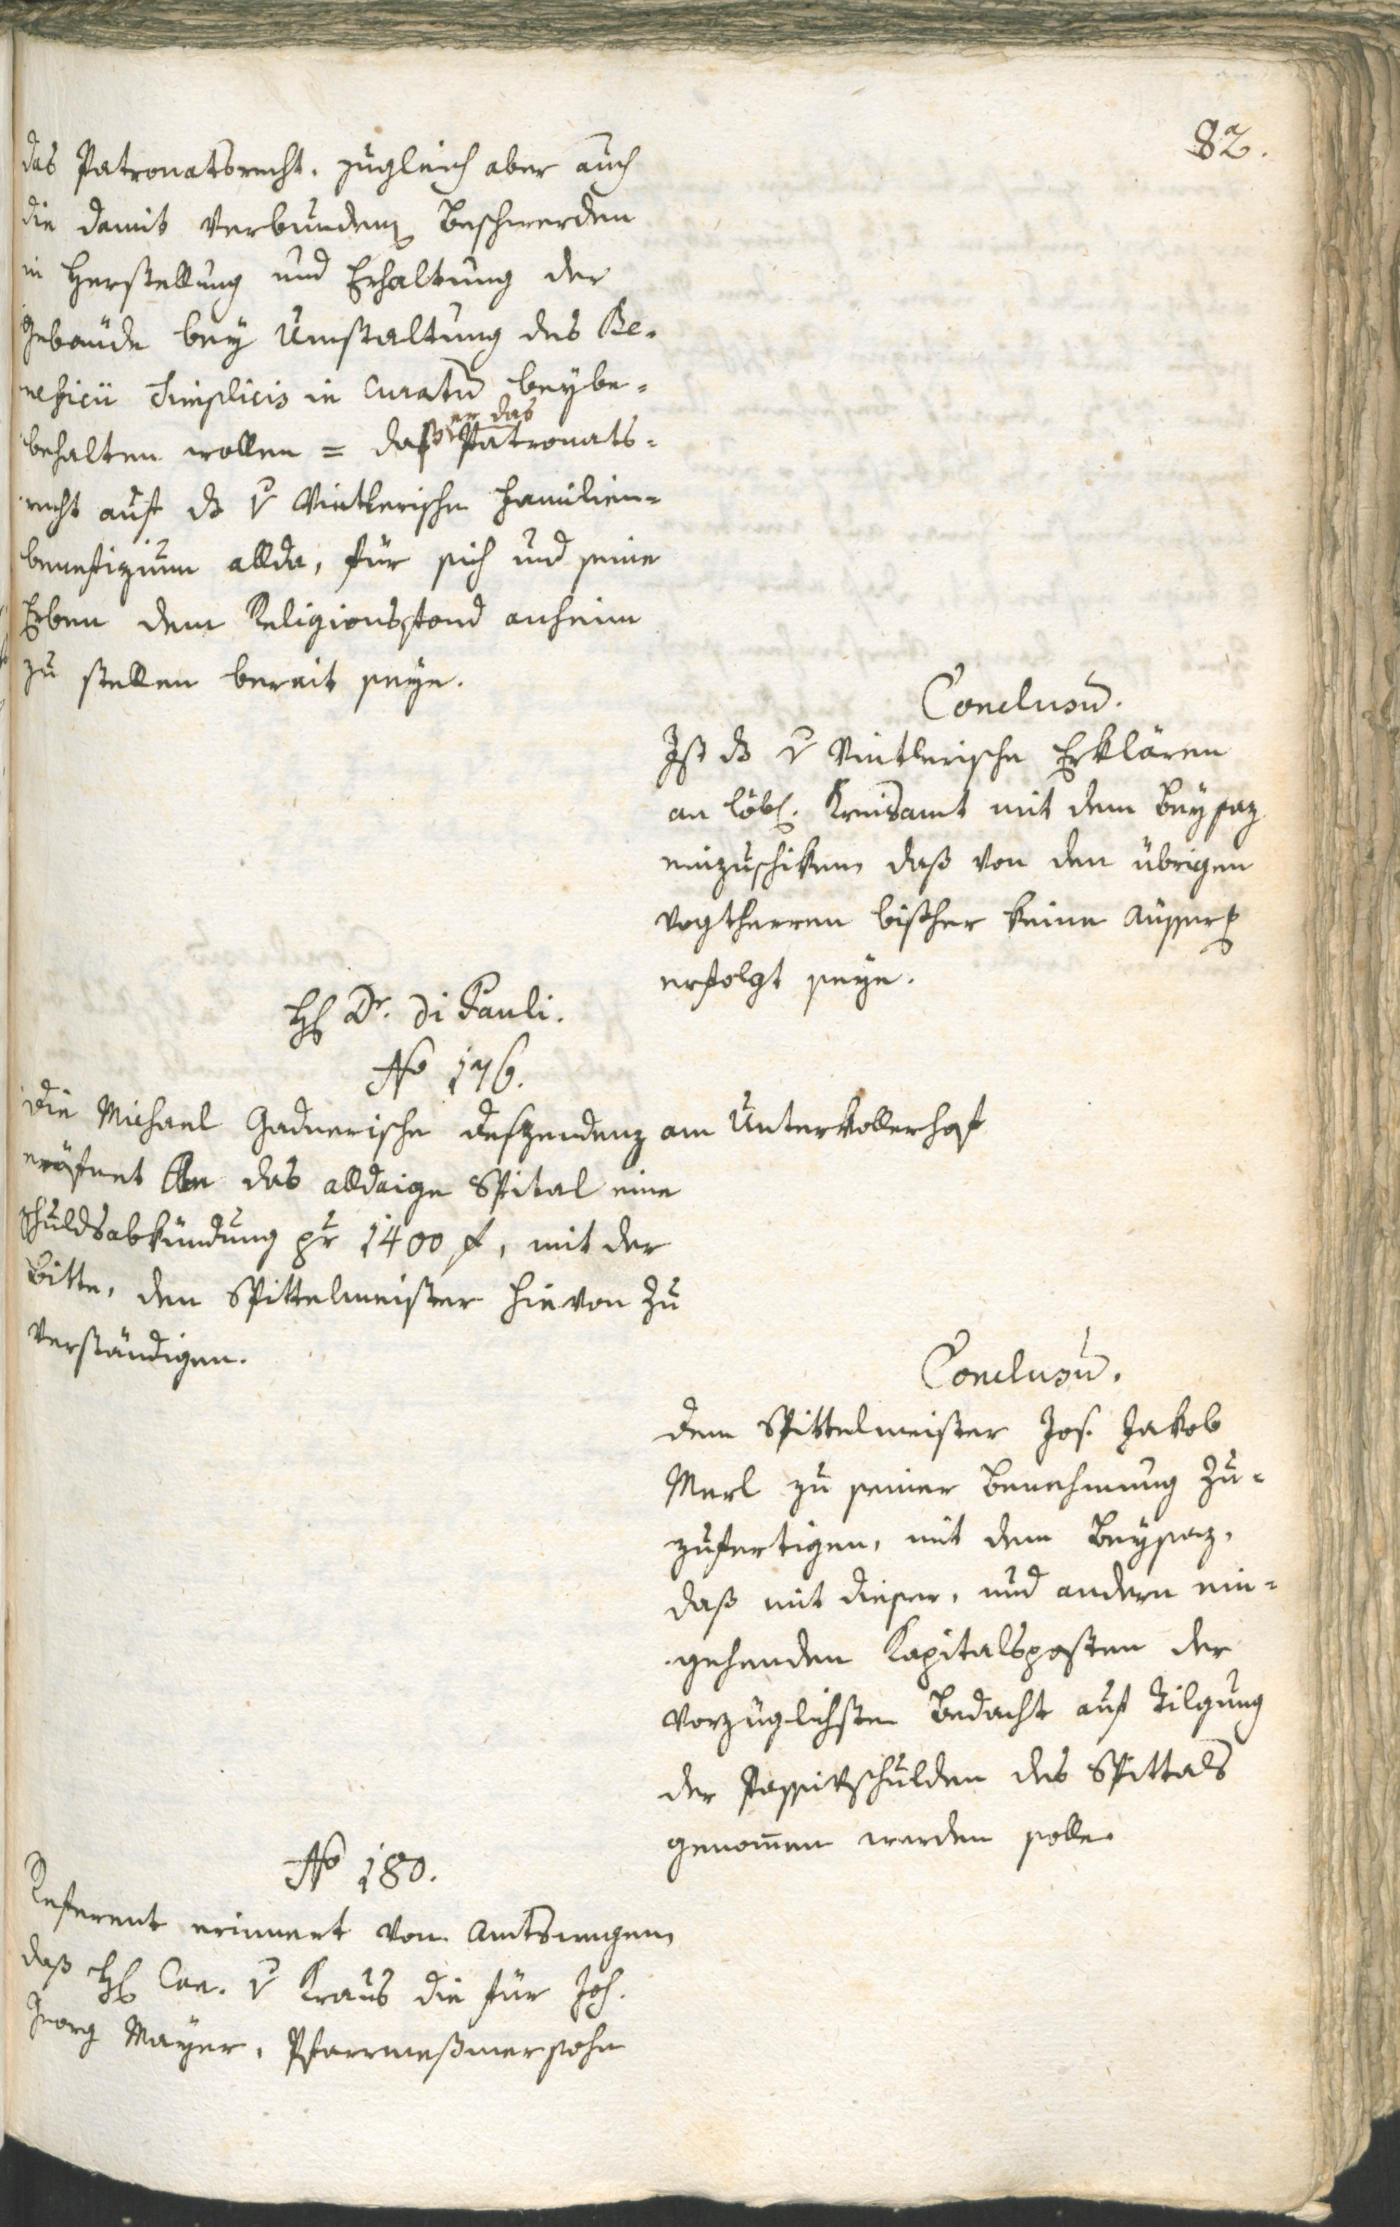 82.
das Patronatsrecht. zugleich aber auch
die damit verbundenen Beschwerden
in Herstellung und Erhaltung der
Gebäude bey Umstaltung des Be-
neficii Simplicis in Curatum beybe-
behalten wollen = daß er das Patronats-
recht auf das v Vintlerische Familien-
benefizium allda, für sich und seine
Erben dem Religionsfond anheim
zu stellen bereit seye.
Conclusum.
Ist das v Vintlerische Erklären
an löbl. Kreisamt mit dem Beysaz
einzuschiken, daß von den übrigen
Vogtherren bisher keine Äusserung
erfolgt seye.
H Dr. Di Pauli.
No 176.
Die Michael Gadnerische Deszendenz am Unterkollerhof
eröfnet an das alldaige Spital eine
Schuldsabkündung pr 1400 f, mit der
Bitte, den Spittelmeister hievon zu
verständigen.
Conclusum.
dem Spittelmeister Jos. Jakob
Merl zu seiner Benehmung zu-
zufertigen, mit dem Beysaz,
daß mit dieser, und andern ein-
gehenden Kapitalsposten der
vorzüglichste Bedacht auf Tilgung
der Passivschulden des Spittals
genommen werden solle.
No 180.
Referent erinnert von Amtswegen,
daß H Can. v Kraus die für Joh.
Georg Mayer, Pfarrmeßmersohn